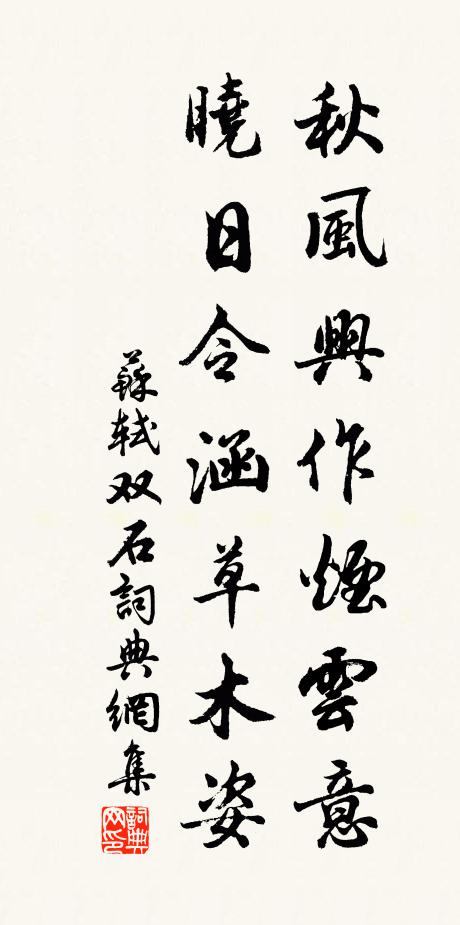 秋風興作煙雲意
曉日令涵草木姿
蘇軾双石詞典網集
詞典網印